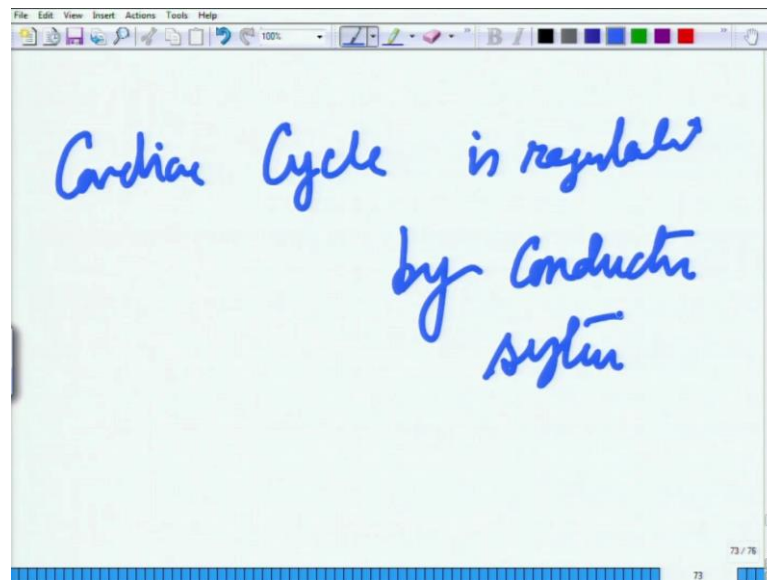 File Edit View Insert Actions Tools Help
100%
B I
Cardiac Cycle is regulated
by Conduction
system
73 / 76
73